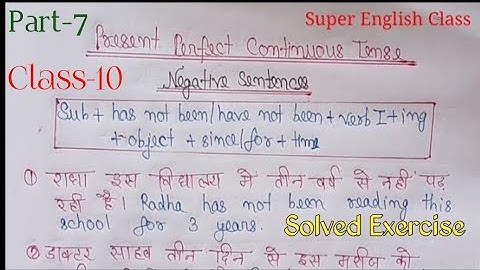 Part-7
Super English Class
Present Perfect Continuous Tense
Class-10
Negative Sentences
Sub + has not been/have not been + verb I + ing
+ object + since/for + time
① राधा इस विद्यालय मे तीन वर्ष से नहीं पढ़
रही है। Radha has not been reading this
school for 3 years.
Solved Exercise
② डाक्टर साहब तीन दिन से इस मरीज को